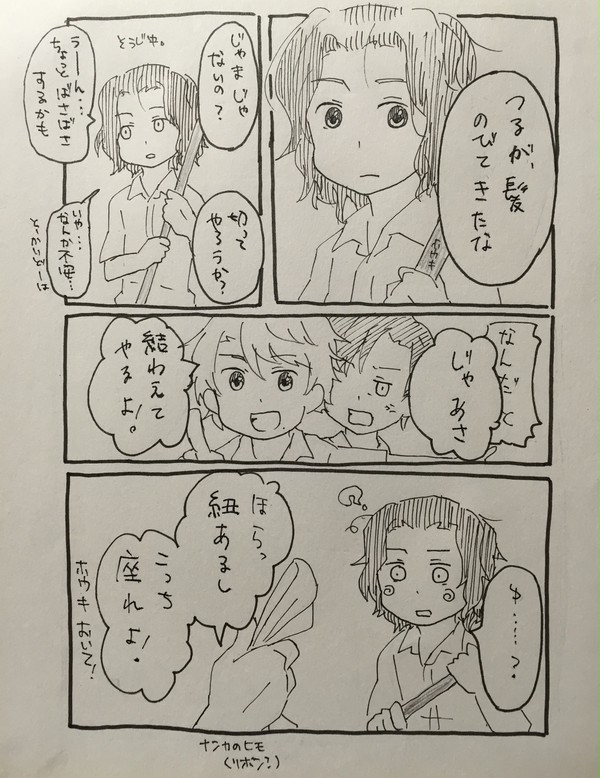 つるが、髪
のびてきたな
ホウキ
そうじ中。
じゃまじゃ
ないの?
うーん…
ちょっとばさばさ
するかも
切って
やろうか?
いや…
なんか不安…
なんだと
じゃあさ
結わえて
やるよ!
ゆ……?
ほらっ
紐あるし
こっち
座れよ!
ホウキおいて!
ナンカのヒモ
(リボン?)